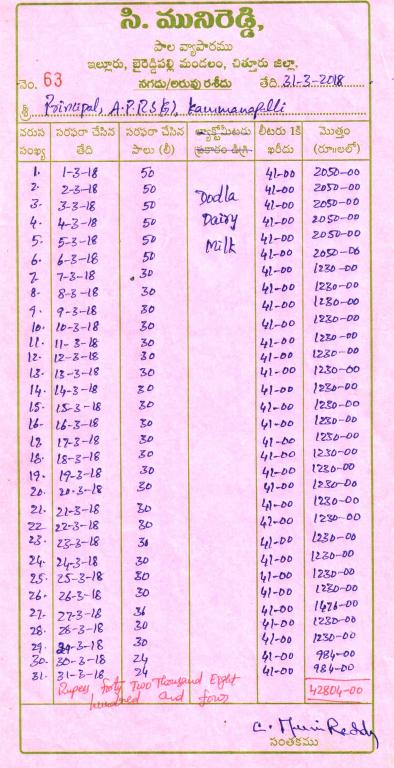 సి. మునిరెడ్డి,
పాల వ్యాపారము
ఇల్లూరు, బైరెడ్డిపల్లి మండలం, చిత్తూరు జిల్లా.
నెం. 63 నగదు/అరువు రశీదు తేది 31-3-2018
శ్రీ Principal, A.P.R.S(G), Kammanapalli
వరుస సంఖ్య సరఫరా చేసిన తేది సరఫరా చేసిన పాలు (లీ) లాక్టోమీటరు ప్రకారం డిగ్రీ లీటరు 1కి ఖరీదు మొత్తం (రూ॥లలో)
1. 1-3-18 50 41-00 2050-00
2. 2-3-18 50 Dodla 41-00 2050-00
3. 3-3-18 50 Dairy 41-00 2050-00
4. 4-3-18 50 Milk 41-00 2050-00
5. 5-3-18 50 41-00 2050-00
6. 6-3-18 50 41-00 2050-00
7. 7-3-18 30 41-00 1230-00
8. 8-3-18 30 41-00 1230-00
9. 9-3-18 30 41-00 1230-00
10. 10-3-18 30 41-00 1230-00
11. 11-3-18 30 41-00 1230-00
12. 12-3-18 30 41-00 1230-00
13. 13-3-18 30 41-00 1230-00
14. 14-3-18 30 41-00 1230-00
15. 15-3-18 30 41-00 1230-00
16. 16-3-18 30 41-00 1230-00
17. 17-3-18 30 41-00 1230-00
18. 18-3-18 30 41-00 1230-00
19. 19-3-18 30 41-00 1230-00
20. 20-3-18 30 41-00 1230-00
21. 21-3-18 30 41-00 1230-00
22. 22-3-18 30 41-00 1230-00
23. 23-3-18 30 41-00 1230-00
24. 24-3-18 30 41-00 1230-00
25. 25-3-18 30 41-00 1230-00
26. 26-3-18 30 41-00 1230-00
27. 27-3-18 36 41-00 1476-00
28. 28-3-18 30 41-00 1230-00
29. 29-3-18 30 41-00 1230-00
30. 30-3-18 24 41-00 984-00
31. 31-3-18 24 41-00 984-00
Rupees forty Two Thousand Eight 42804-00
hundred and four
C. Muni Reddy
సంతకము